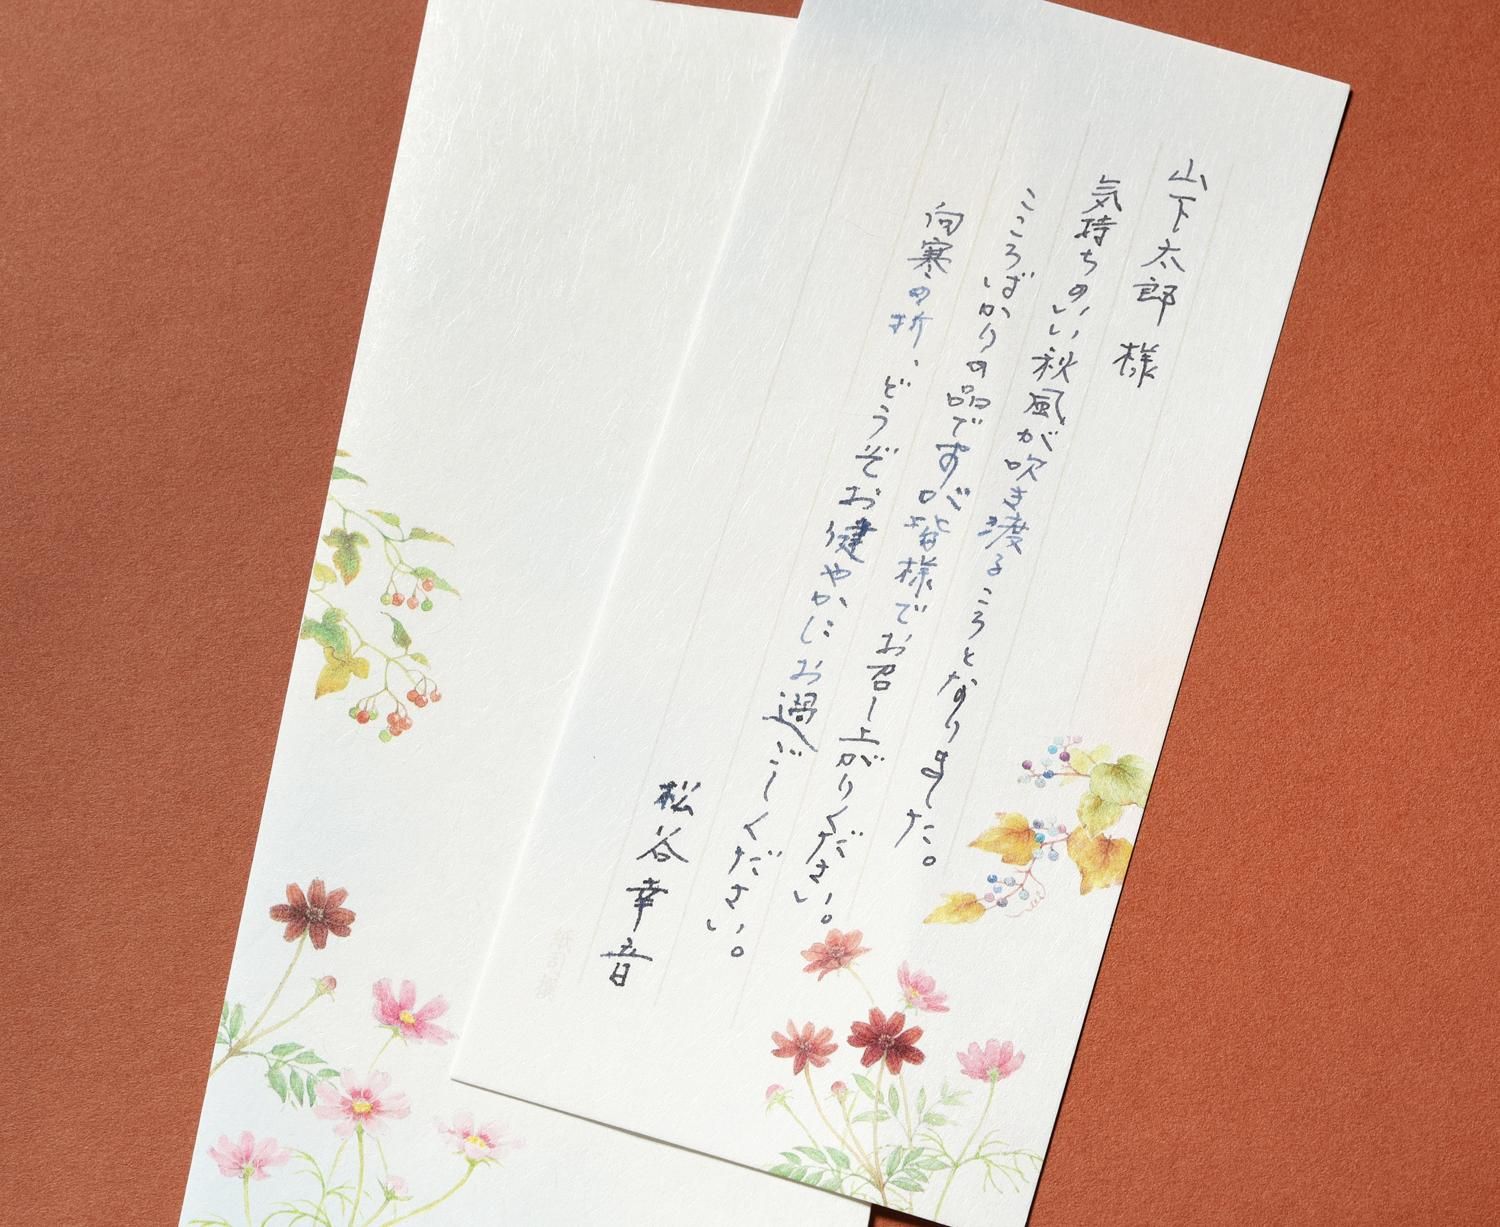 山下太郎 様
気持ちのいい秋風が吹き渡るころとなりました。
こころばかりの品ですが皆様でお召し上がりください。
向寒の折、どうぞお健やかにお過ごしください。
松谷幸音